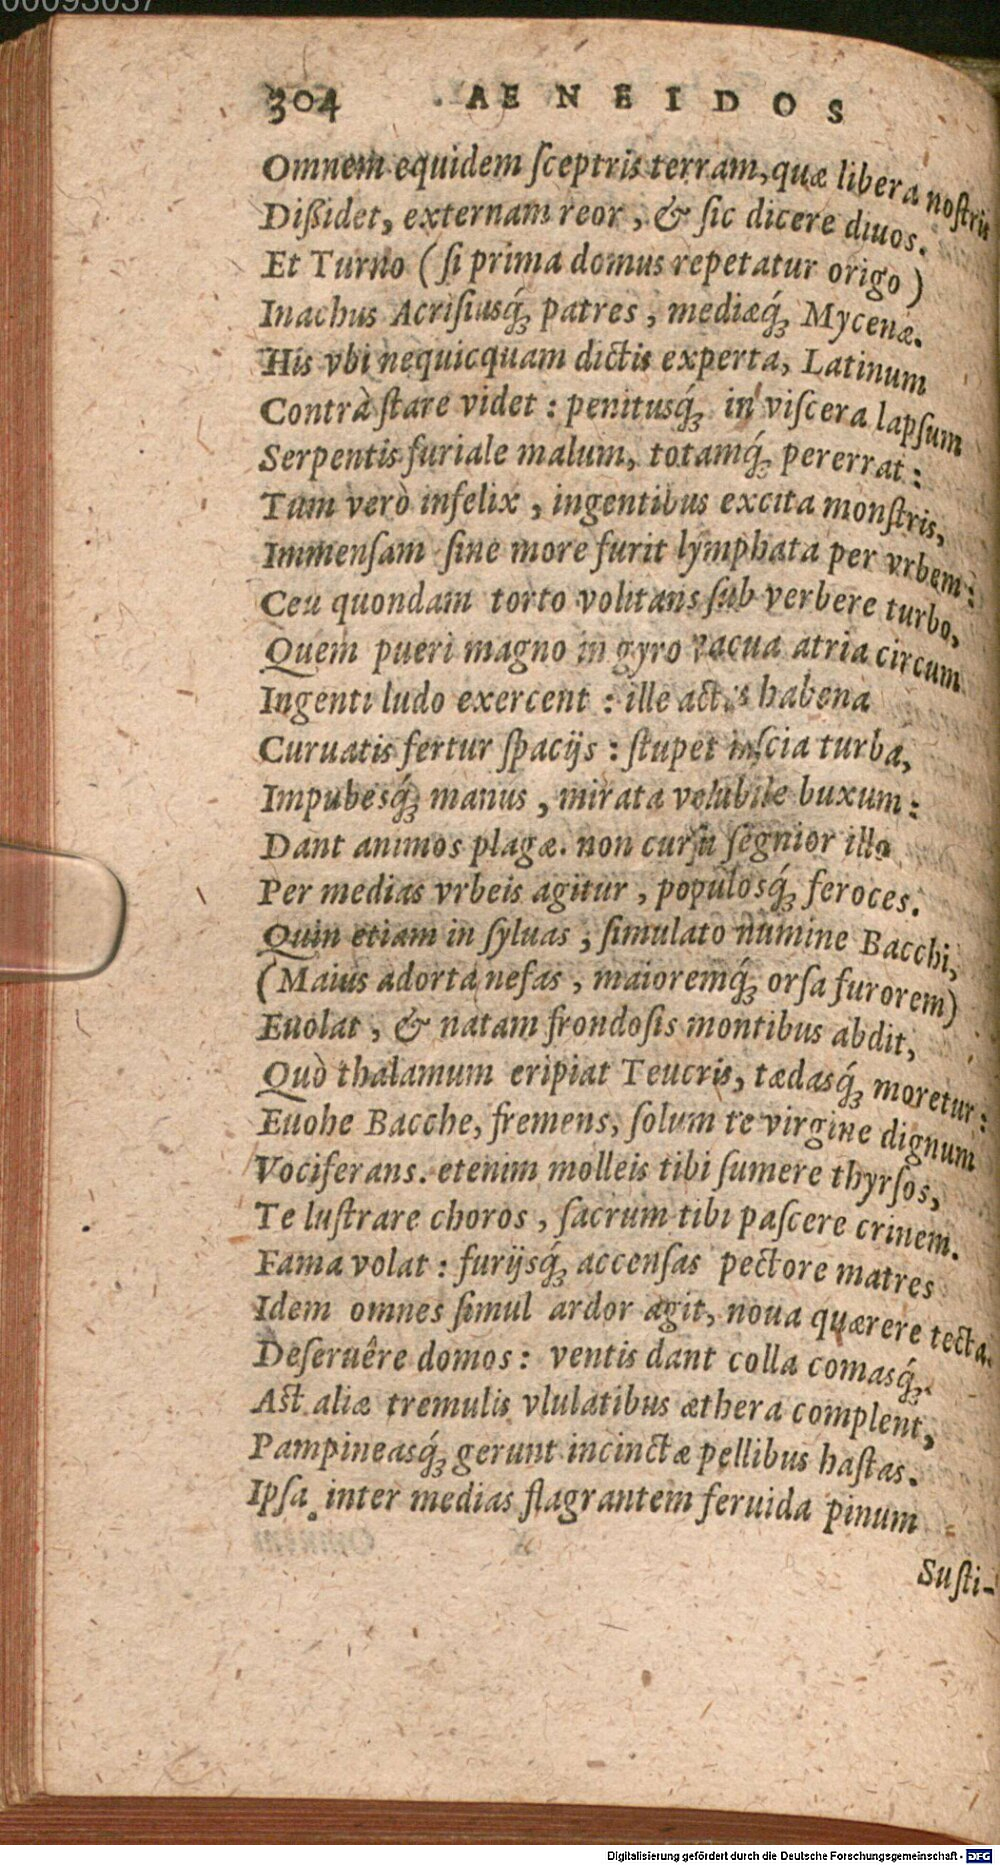 00093037
304 AENEIDOS
Omnem equidem ſceptris terram, quæ libera noſtris
Dißidet, externam reor, & ſic dicere diuos.
Et Turno (ſi prima domus repetatur origo)
Inachus Acriſiusq́; patres, mediæq́; Mycenæ.
His vbi nequicquam dictis experta, Latinum
Contrà ſtare videt: penitusq́; in viſcera lapſum
Serpentis furiale malum, totamq́; pererrat:
Tum verò infelix, ingentibus excita monſtris,
Immenſam ſine more furit lymphata per vrbem:
Ceu quondam torto volitans ſub verbere turbo,
Quem pueri magno in gyro vacua atria circum
Ingenti ludo exercent: ille actus habena
Curuatis fertur ſpacijs: ſtupet inſcia turba,
Impubesq́; manus, mirata volubile buxum:
Dant animos plagæ. non curſu ſegnior illo
Per medias vrbeis agitur, populosq́; feroces.
Quin etiam in ſyluas, ſimulato numine Bacchi,
(Maius adorta nefas, maioremq́; orſa furorem)
Euolat, & natam frondoſis montibus abdit,
Quò thalamum eripiat Teucris, tædasq́; moretur:
Euohe Bacche, fremens, ſolum te virgine dignum
Vociferans. etenim molleis tibi ſumere thyrſos,
Te luſtrare choros, ſacrum tibi paſcere crinem.
Fama volat: furijsq́; accenſas pectore matres
Idem omnes ſimul ardor agit, noua quærere tecta.
Deſeruêre domos: ventis dant colla comasq́;.
Aſt aliæ tremulis vlulatibus æthera complent,
Pampineasq́; gerunt incinctæ pellibus haſtas.
Ipſa inter medias flagrantem feruida pinum
Suſti-
Digitalisierung gefördert durch die Deutsche Forschungsgemeinschaft - DFG